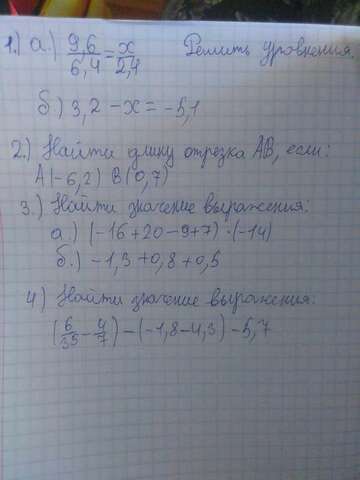 1.) а.) 9,6/6,4 = x/2,4 Решить уровнения.
б.) 3,2 - x = -5,1
2.) Найти длину отрезка AB, если:
A(-6,2) B(0,7)
3.) Найти значение выражения:
а.) (-16+20-9+7)·(-14)
б.) -1,3+0,8+0,5
4) Найти значение выражения:
(6/35 - 4/7) - (-1,8-4,3) - 5,7